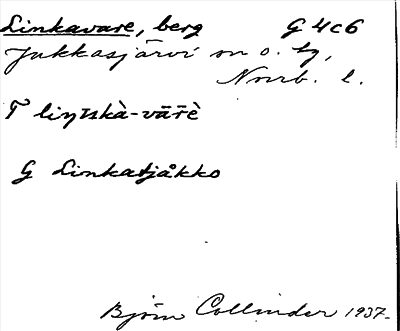 Linkavare, berg G 4c6
Jukkasjärvi sn o. tg,
Norrb. l.
T liŋᴋskà-vārè
G Linkatjåkko
Björn Collinder 1937.